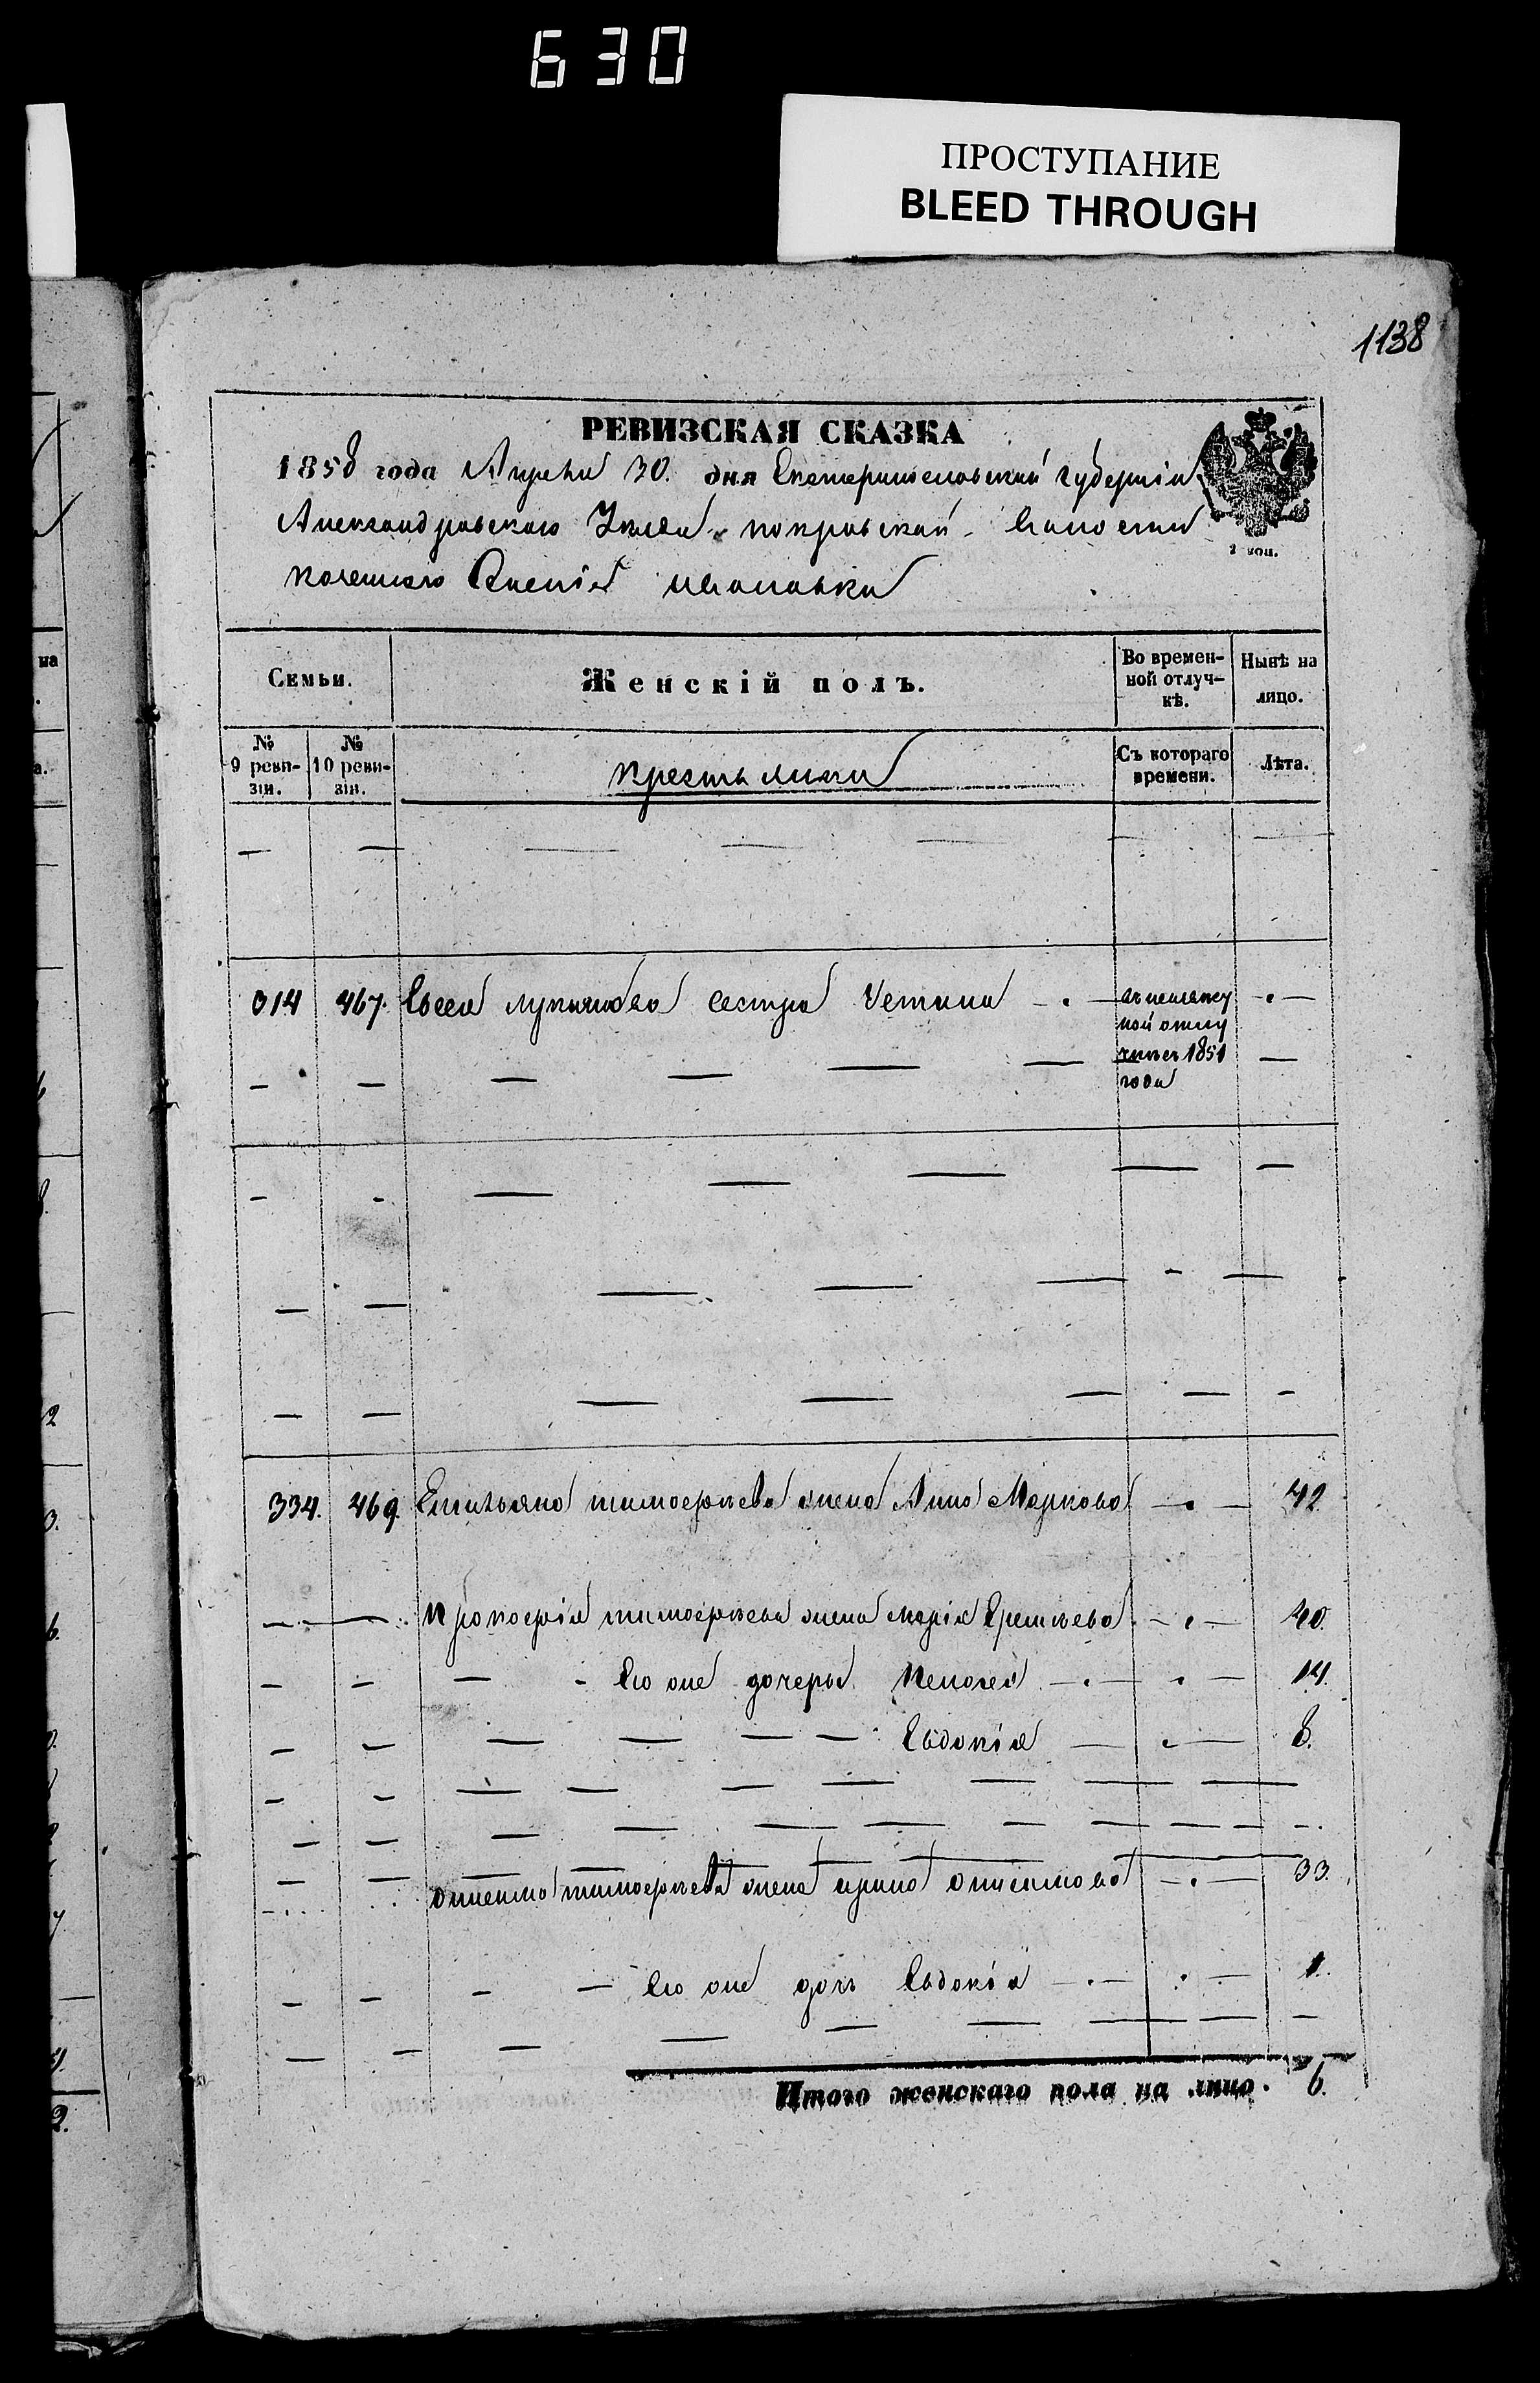 630
ПРОСТУПАНИЕ
BLEED THROUGH
1138
РЕВИЗСКАЯ СКАЗКА
1858 года Апреля 30. дня Екатеринославской губернiи
Александровского Уезда покровской волости
казенного Селенiя
2 коп.
Семьи.
Женскій полъ.
Во времен-
ной отлуч-
кѣ.
Нынѣ на
лицо.
№
9 реви-
зіи.
№
10 реви-
зіи.
Крестьянки
Съ котораго
времени.
Лѣта.
314 467. Евсея сестра
1851
года
334. 469. Емильяна тимофеева жена Анна Маркова 42
Прокофiя тимофеева жена марiя 40.
Его же дочери Пелагея 14.
Евдокiя 8.
Онисима тимофеева жена ирина онисимова 33.
Его же дочь Евдокiя 1.
Итого женскаго пола на лицо. 6.